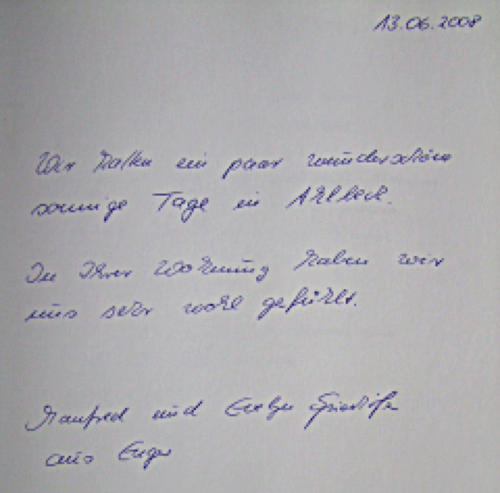 13.06.2008
Wir hatten ein paar wunderschöne
sonnige Tage in Ahlbeck.
In Ihrer Wohnung haben wir
uns sehr wohl gefühlt.
Manfred und
aus Enger